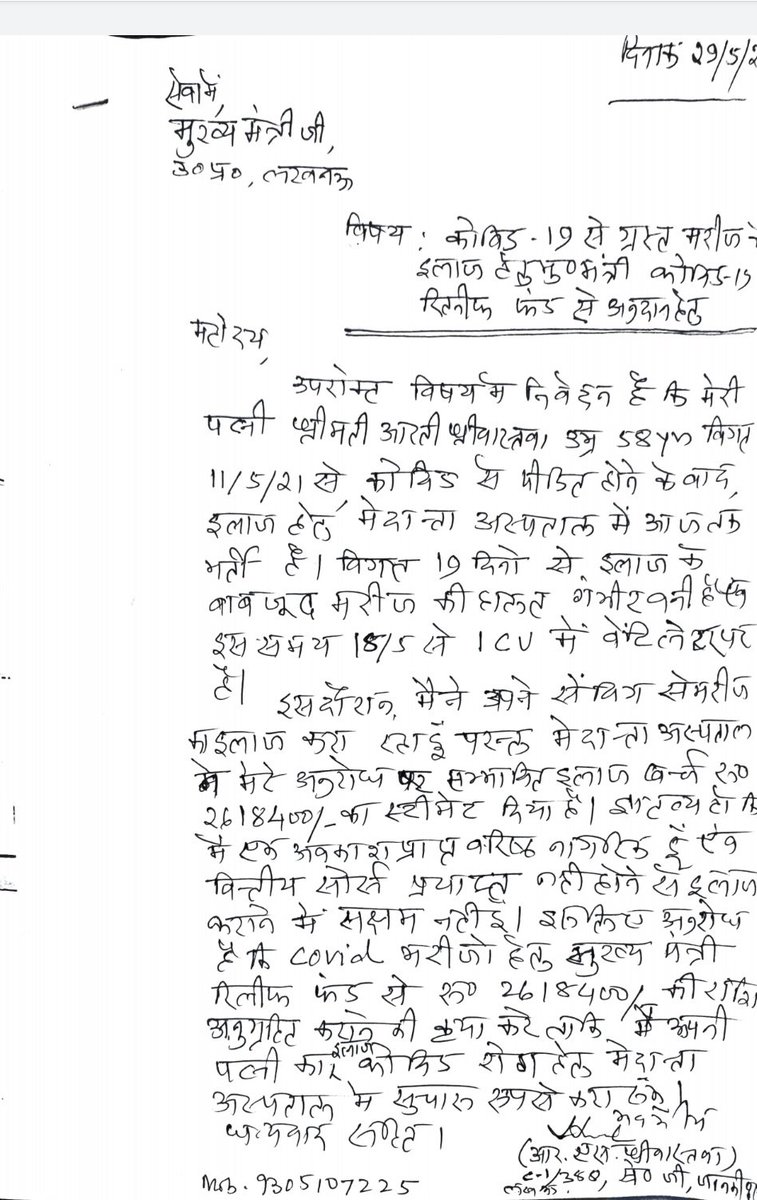 दिनांक 29/5/2
सेवामें,
मुख्य मंत्री जी,
उ०प्र०, लखनऊ
विषय : कोविड-19 से ग्रस्त मरीज के
इलाज हेतु मु०मंत्री कोविड-19
रिलीफ फंड से अनुदान हेतु
महोदय,
उपरोक्त विषयम निवेदन है कि मेरी
पत्नी श्रीमती आरती श्रीवास्तवा उम्र 58yrs विगत
11/5/21 से, कोविड से पीडित होने के बाद,
इलाज हेतु मेदान्ता अस्पताल में आजतक
भर्ती है। विगत 19 दिनो से, इलाज के
बावजूद मरीज की हालत गंभीर बनी है एवं
इस समय 18/5 से ICU में वेंटिलेटर पर
है।
इस दौरान, मैने अपने सेंविग से मरीज
का इलाज करा रहा हूँ परन्तु मेदान्ता अस्पताल
ने मेरे अनुरोध पर सम्भावित इलाज खर्च रू०
2618400/- का स्टीमेट दिया है। ज्ञातव्य हो कि
मै एक अवकाश प्राप्त वरिष्ठ नागरिक हूँ एवं
वित्तीय सोर्स प्रयाप्त नही होने से इलाज
कराने में सक्षम नही हूँ। इसलिए अनुरोध
है कि covid मरीजो हेतु मुख्य मंत्री
रिलीफ फंड से रू० 2618400/- की राशि
अनुग्रहित कराने की कृपा करे ताकि मै अपनी
पत्नी का इलाज कोविड रोग हेतु मेदान्ता
अस्पताल मे सुचारू रूपसे करा सकूं।
धन्यवाद सहित।
भवदीय
(आर. एस. श्रीवास्तवा)
C-1/388, से० जी, जानकीपु
लखनऊ
Mob. 9305107225